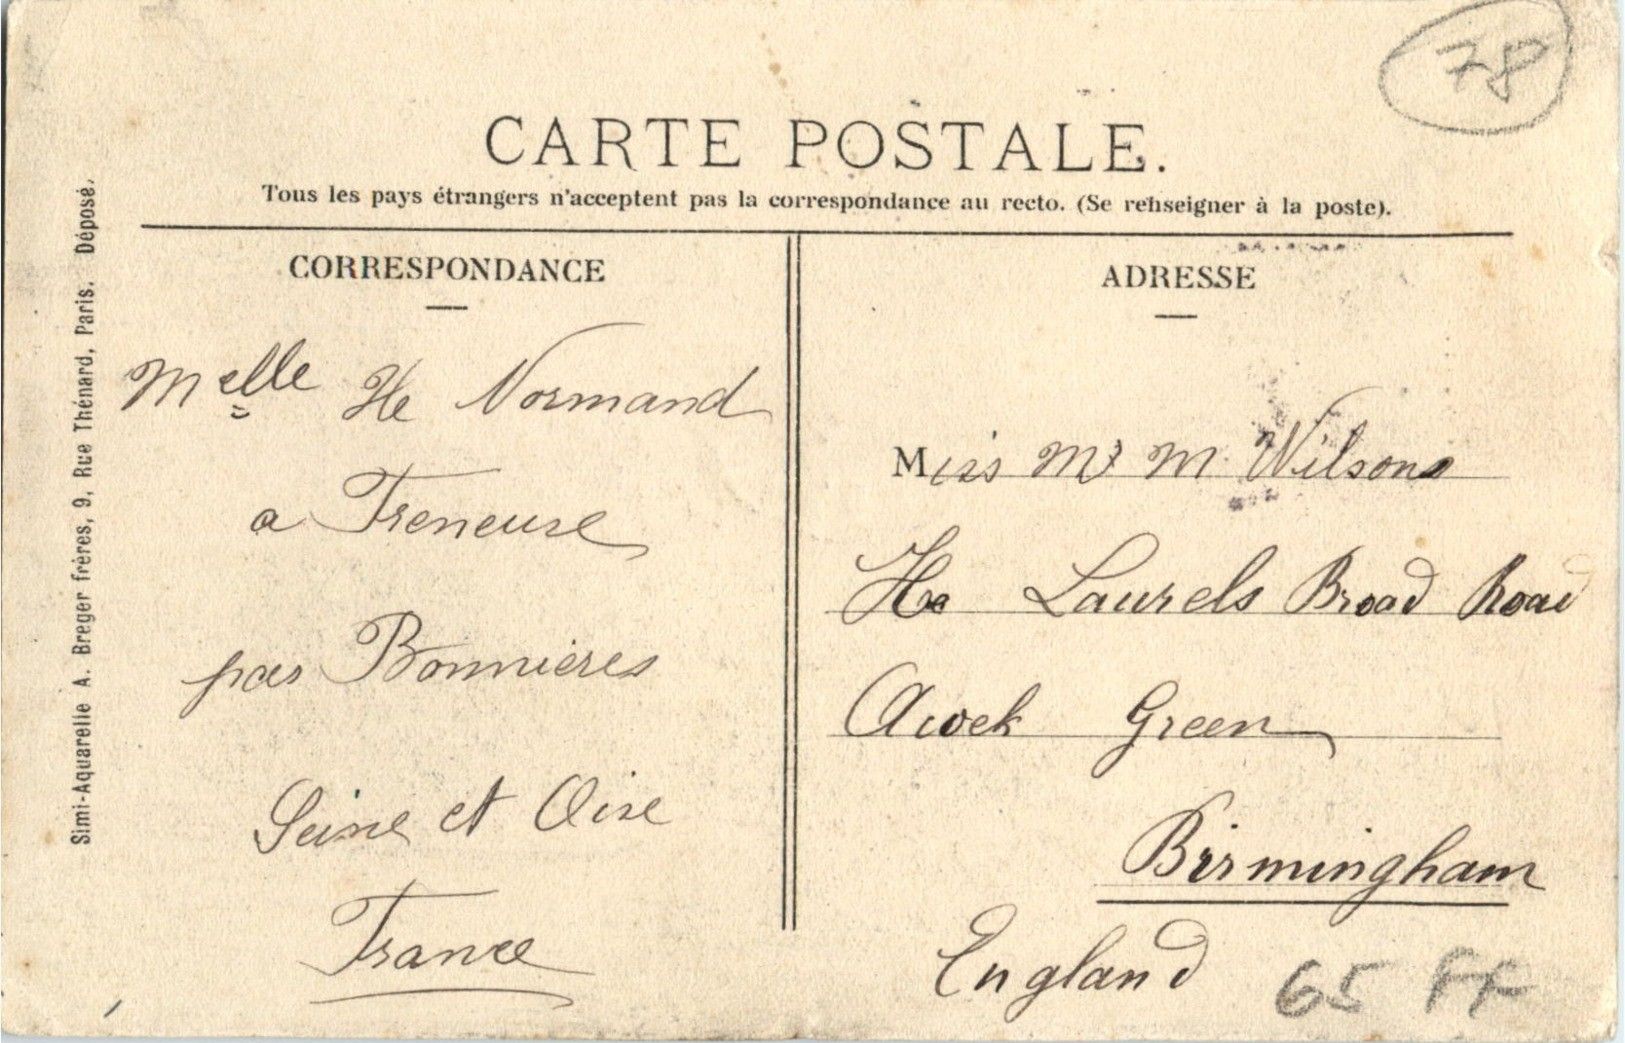 78
CARTE POSTALE.
Tous les pays étrangers n'acceptent pas la correspondance au recto. (Se renseigner à la poste).
CORRESPONDANCE
Melle He Normand
a Freneuse
par Bonnières
Seine et Oise
France
ADRESSE
Miss M. Wilsons
He Laurels Broad Road
Awek Green
Birmingham
England
65 FF
Simi-Aquarelle A. Breger frères, 9, Rue Thénard, Paris. Déposé.